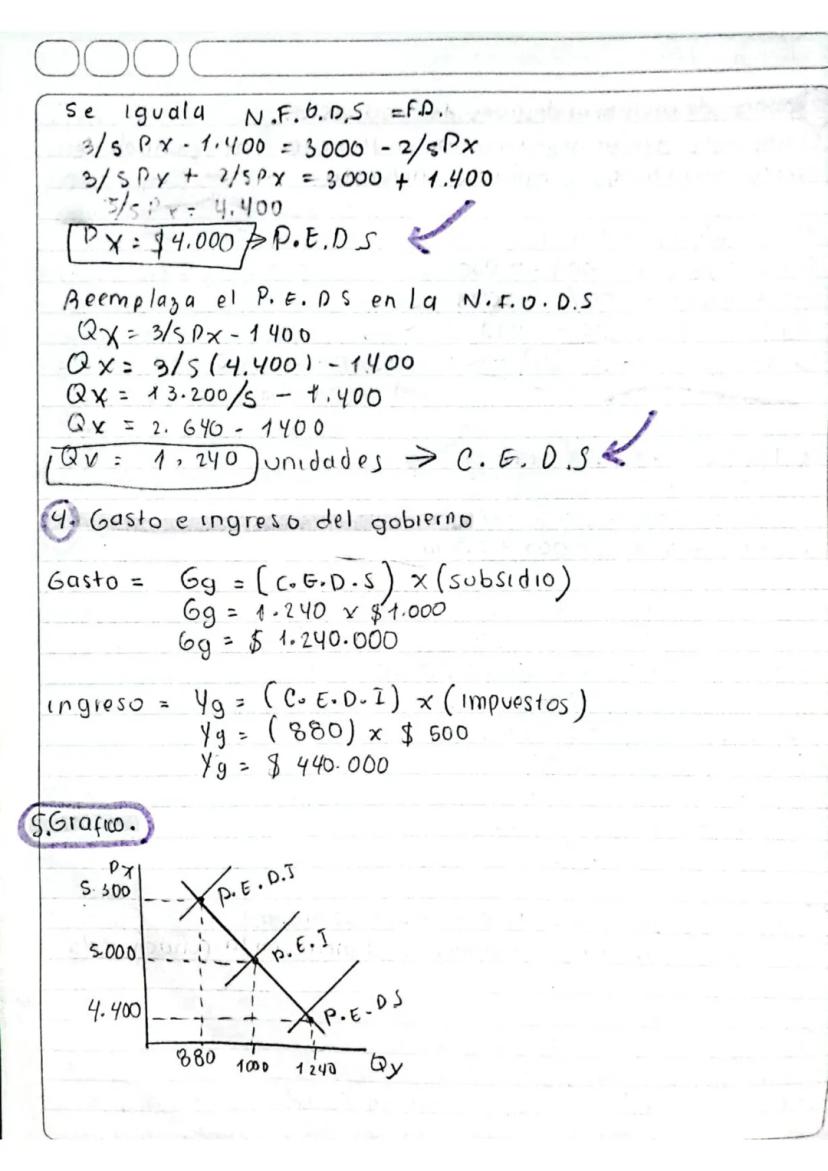 Se iguala N.F.O.D.S = F.D.
3/5 Px - 1.400 = 3000 - 2/5Px
3/5 Px + 2/5Px = 3000 + 1.400
5/5 Px = 4.400
Px = $4.000 → P.E.D.S
Reemplaza el P.E.DS en la N.F.O.D.S
Qx = 3/5Px - 1400
Qx = 3/5(4.400) - 1400
Qx = 13.200/5 - 1.400
Qx = 2.640 - 1400
Qx = 1,240 unidades → C.E.D.S
4. Gasto e ingreso del gobierno
Gasto = Gg = (C.E.D.S) x (subsidio)
Gg = 1.240 x $1.000
Gg = $ 1.240.000
ingreso = Yg = (C.E.D.I) x (impuestos)
Yg = (880) x $ 500
Yg = $ 440.000
5.Grafico.
Px
5.300
P.E.D.I
5.000
P.E.I
4.400
P.E-DS
880 1000 1240 Qy